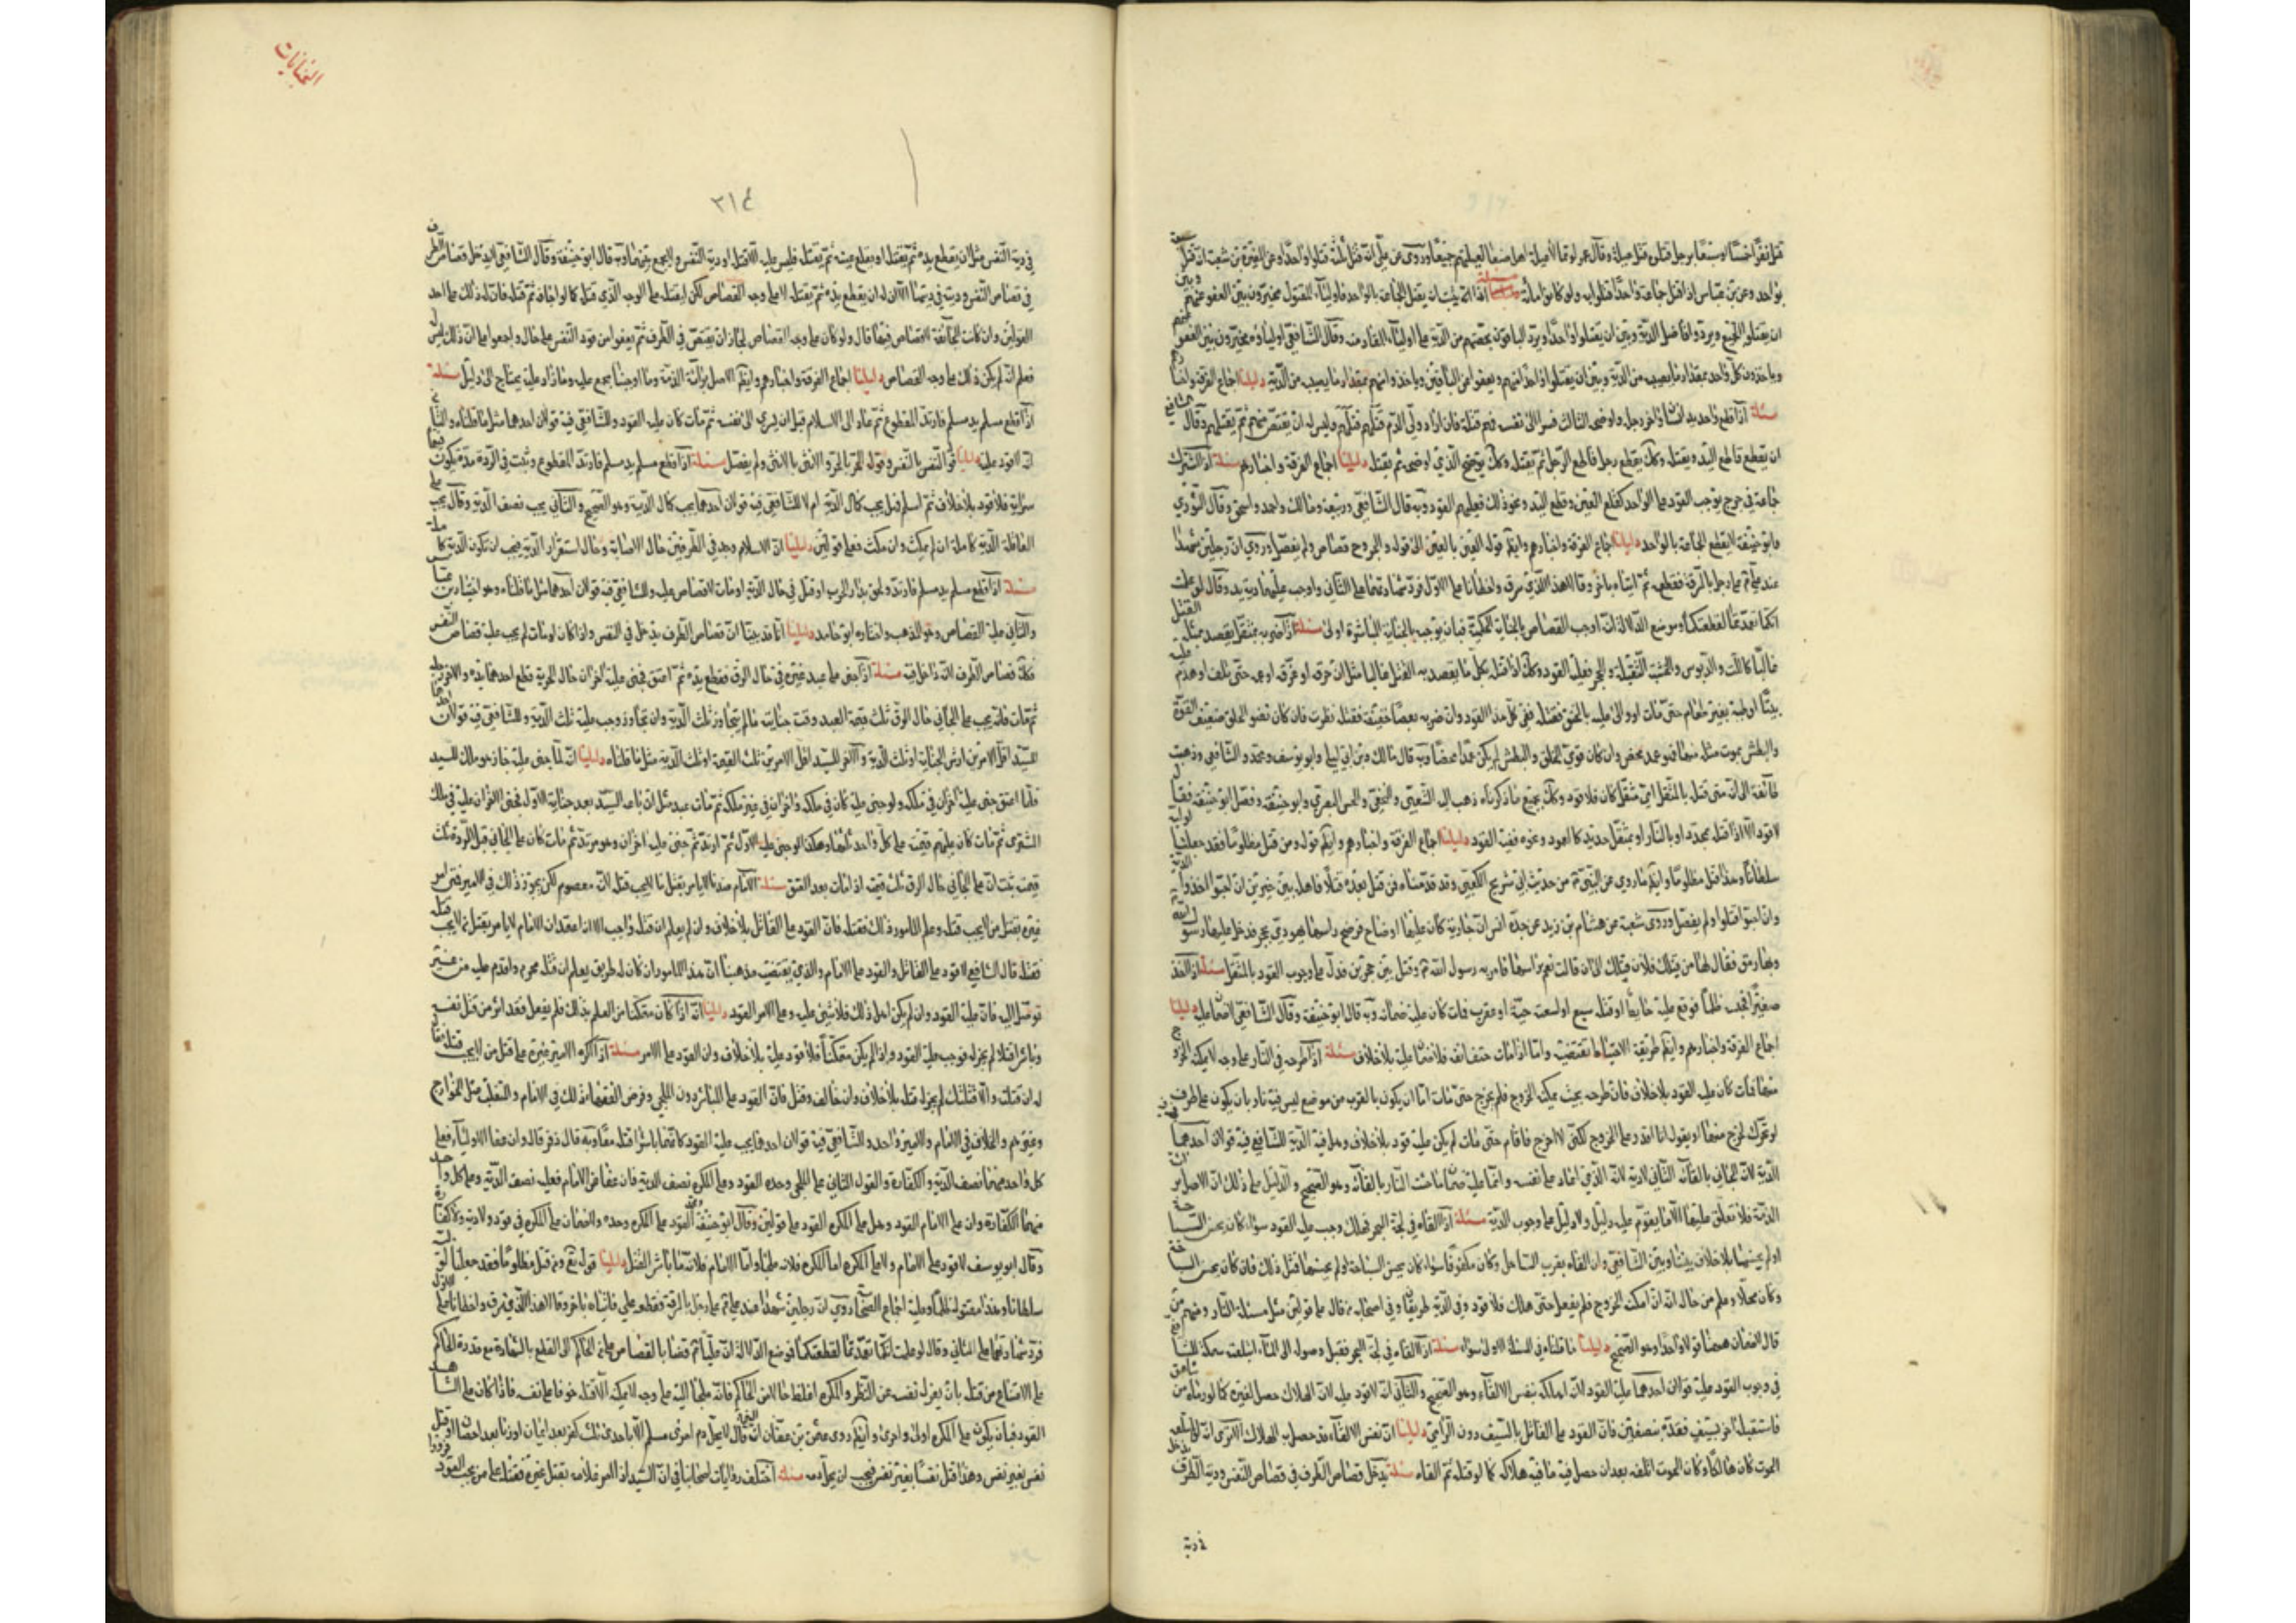 قتل نفرا خمسا او سبعا برجل قتلوه قتل غيلة وقال عمر لو تمالأ عليه اهل صنعاء لقتلتهم جميعا وروي عن علي انه قتل ثلثة قتلوا واحدا وعن المغيرة بن شعبة انه قتل سبعة
بواحد وعن ابن عباس اذا قتل جماعة واحدا قتلوا به ولو كانوا مائة مسئلة اذا ثبت انه يقتل الجماعة بالواحد فاولياء المقتول مخيرون بين العفو عنهم وبين
ان يقتلوا الجميع ويردوا فاضل الدية وبين ان يقتلوا واحدا ويرد الباقون بحصتهم من الدية على اولياء المقاد منه وقال الشافعي اولياؤه مخيرون بين العفو عنهم
وياخذون كل واحد بمقدار ما يصيبه من الدية وبين ان يقتلوا واحدا منهم ويعفوا عن الباقين وياخذوا منهم بمقدار ما يصيبه من الدية دليلنا اجماع الفرقة واخبارهم
مسئلة اذا قطع واحد يد انسان واخر رجله واوضحه الثالث فسرى الى نفسه فهم قتلة فان اراد ولي الدم قتلهم قتلهم وليس له ان يقتص منهم ثم يقتلهم وقال الشافعي له
ان يقطع قاطع اليد ويقتله وكذلك يقطع رجل قاطع الرجل ثم يقتله وكذلك يوضح الذي اوضحه ثم يقتله دليلنا اجماع الفرقة واخبارهم مسئلة اذا اشترك
جماعة في جرح يوجب القود على الواحد كقلع العين وقطع اليد ونحو ذلك فعليهم القود وبه قال الشافعي وربيعة ومالك واحمد واسحق وقال الثوري
وابو حنيفة لا يقطع الجماعة بالواحد دليلنا اجماع الفرقة واخبارهم وايضا قوله العين بالعين الى قوله والجروح قصاص ولم يفصل وروي ان رجلين شهدا
عند علي ع على رجل بالسرقة فقطعه ثم اتياه باخر وقالا هذا الذي سرق واخطأنا على الاول فرد شهادتهما على الثاني واوجب عليهما دية يده وقال لو علمت
انكما تعمدتما لقطعتكما وموضع الدلالة انه اوجب القصاص بالجناية الحكمية فبان يوجب بالجناية المباشرة اولى مسئلة اذا ضربه بمثقل يقصد بمثله القتل
غالبا كاللت والدبوس والخشبة الثقيلة والحجر فعليه القود وكذلك اذا قتله بكل ما يقصد به القتل غالبا مثل ان حرقه او غرقه او غمه حتى تلف او هدم عليه
بيتا او طينه بغير طعام حتى مات او والى عليه بالخنق فقتله ففي كل هذا القود وان ضربه بعصا خفيفة فقتله نظرت فان كان نضو الخلق ضعيف القوة
والبطش يموت مثله منها فهو عمد محض وان كان قوي الخلق والبطش لم يكن عمدا محضا وبه قال مالك وابن ابي ليلى وابو يوسف ومحمد والشافعي وذهبت
طائفة الى انه متى قتله بالمثقل اي مثقل كان فلا قود وكذلك بجميع ما ذكرناه ذهب اليه الشعبي والنخعي والحسن البصري وابو حنيفة وفصل ابو حنيفة فقال
لا قود الا اذا قتله بمحدد او بالنار او بمثقل حديد كالعمود ونحوه ففيه القود دليلنا اجماع الفرقة واخبارهم وايضا قوله ومن قتل مظلوما فقد جعلنا لوليه
سلطانا وهذا قتل مظلوما وايضا ما روي عن النبي ص من حديث ابي شريح الكعبي وقد قدمناه فمن قتل بعده قتيلا فاهله بين خيرتين ان احبوا اخذوا الدية
وان احبوا قتلوا ولم يفصل وروى شعبة عن هشام بن زيد عن جده انس ان جارية كان عليها اوضاح فرضخ راسها يهودي بحجر فدخل عليها رسول الله
وبها رمق فقال لها من قتلك فلان قتلك الى ان قالت نعم براسها فامر به رسول الله ص وقتل بين حجرين فدل على وجوب القود بالمثقل مسئلة اذا اخذ
صغيرا فحبسه ظلما فوقع عليه حائط او قتله سبع او لسعته حية او عقرب فمات كان عليه ضمانه وبه قال ابو حنيفة وقال الشافعي لا ضمان عليه دليلنا
اجماع الفرقة واخبارهم وايضا طريقة الاحتياط تقتضيه واما اذا مات حتف انفه فلا ضمان عليه بلا خلاف مسئلة اذا طرحه في النار على وجه لا يمكنه الخروج
منها فمات كان عليه القود بلا خلاف فان طرحه بحيث يمكنه الخروج فلم يخرج حتى مات اما ان يكون بالقرب من موضع ليس فيه نار بان يكون على طرف
لو تحرك لخرج منها او يقول انا اقدر على الخروج لكني لا اخرج فاقام حتى مات لم يكن عليه قود بلا خلاف وهل فيه الدية للشافعي فيه قولان احدهما
الدية لانه الجاني بالقائه الثاني لا دية لانه الذي اعان على نفسه وانما عليه ضمان ما جنت النار بالقائه وهو الصحيح والدليل على ذلك ان الاصل براءة
الذمة فلا تعلق عليها الا ما يقوم عليه دليل ولا دليل على وجوب الدية مسئلة اذا القاه في لجة البحر فهلك وجب عليه القود سواء كان يحسن السباحة
او لم يحسنها بلا خلاف بيننا وبين الشافعي وان القاه بقرب الساحل وكان مكتوفا سواء كان يحسن السباحة او لم يحسنها فمثل ذلك فان كان يحسن السباحة
وكان مخلا وعلم من حاله انه امكنه الخروج فلم يفعل حتى هلك فلا قود وفي الدية طريقان وفي اصحابه من قال على قولين مثل مسئلة النار ومنهم من
قال الضمان ههنا قولا واحدا وهو الصحيح دليلنا ما قلناه في المسئلة الاولى سواء مسئلة اذا القاه في لجة البحر فقبل وصوله الى الماء ابتلعته سمكة للشافعي
في وجوب القود عليه قولان احدهما عليه القود لانه اهلكه بنفس الالقاء وهو الصحيح والثاني انه لا قود عليه لان الهلاك حصل بغيره كما لو رماه من شاهق
فاستقبله اخر بسيف فقده بنصفين فان القود على القاتل بالسيف دون الرامي دليلنا ان نفس الالقاء قد حصل به الهلاك الا ترى انه لو لم ياخذه
الموت كان هالكا وكان الحوت اتلفه بعد ان حصل فيه ما فيه هلاكه كما لو قتله ثم القاه مسئلة يدخل قصاص الطرف في قصاص النفس ودية الطرف تدخل
في دية
الجنايات
٣١٤
في دية النفس مثل ان يقطع يده ثم يقتله او يقلع عينه ثم يقتله فليس عليه الا القتل او دية النفس ولا يجمع بينهما وبه قال ابو حنيفة وقال الشافعي لا يدخل قصاص الطرف
في قصاص النفس وديته في ديتها الا ان له ان يقطع يده ثم يقتله لا على وجه القصاص لكن ليقتله على الوجه الذي قتله كما لو اجافه ثم قتله فان له ذلك على احد
القولين وان كانت الجائفة لا قصاص فيها قال ولو كان على وجه القصاص لجاز ان يقتص في الطرف ثم يعفو عن قود النفس على حال واجمعوا على ان ذلك ليس له
فعلم انه لم يكن ذلك على وجه القصاص دليلنا اجماع الفرقة واخبارهم وايضا الاصل براءة الذمة وما اوجبناه مجمع عليه وما زاد عليه يحتاج الى دليل مسئلة
اذا قطع مسلم يد مسلم فارتد المقطوع ثم عاد الى الاسلام قبل ان يسري الى نفسه ثم مات كان عليه القود وللشافعي فيه قولان احدهما مثل ما قلناه والثاني
انه لا قود عليه دليلنا قوله تع النفس بالنفس وقوله الحر بالحر والانثى بالانثى ولم يفصل مسئلة اذا قطع مسلم يد مسلم فارتد المقطوع وثبت في الردة مدة يكون فيها
سراية فلا قود بلا خلاف ثم اسلم فهل يجب كمال الدية ام لا للشافعي فيه قولان احدهما يجب كمال الدية وهو الصحيح والثاني يجب نصف الدية وقال يجب على
العاقلة الدية كاملة ان لم يمكث وان مكث فعلى قولين دليلنا ان الاسلام وجد في الطرفين حال الاصابة وحال استقرار الدية فيجب ان تكون الدية كاملة
مسئلة اذا قطع مسلم يد مسلم فارتد ولحق بدار الحرب او قتل في حال الردة او مات لا قصاص عليه وللشافعي فيه قولان احدهما مثل ما قلناه وهو اختيار
والثاني عليه القصاص وهو المذهب واختاره ابو حامد دليلنا انا قد بينا ان قصاص الطرف يدخل في النفس واذا كان لو مات لم يجب عليه قصاص النفس
فكذلك قصاص الطرف لانه داخل فيه مسئلة اذا جنى على عبد غيره في حال الرق فقطع يده ثم اعتق فجنى عليه اخران حال الحرية قطع احدهما يده والاخر رجله
ثم مات فانه يجب على الجاني حال الرق ثلث قيمة العبد وقت جنايته ما لم يتجاوز ثلث الدية وان تجاوز وجب عليه ثلث الدية وللشافعي فيه قولان احدهما
للسيد اقل الامرين ارش الجناية او ثلث الدية والاخر للسيد اقل الامرين ثلث القيمة او ثلث الدية مثل ما قلناه دليلنا انه لما جنى عليه جان هو ملك للسيد
فلما اعتق جنى عليه اخران في غير ملكه ولو جنى عليه جان في ملكه واخران في غير ملكه ثم مات عبد مثل ان باعه السيد بعد جناية الاول فجنى اخران عليه في ملك
المشتري ثم مات كان عليهم قيمته على كل واحد ثلثها وهكذا لو جنى عليه الاول ثم ارتد ثم جنى عليه اخران وهو مرتد ثم مات كان على الجاني قبل الردة ثلث
قيمته ثبت ان على الجاني حال الرق ثلث قيمته اذا مات بعد العتق مسئلة الامام عندنا لا يامر بقتل من لا يجب قتله لانه معصوم لكن يجوز ذلك في الامير فمتى امر
غيره بقتل من لا يجب قتله وعلم المامور ذلك فقتله فان القود على القاتل بلا خلاف وان لم يعلم ان قتله واجب الا انه اعتقد ان الامام لا يامر بقتل من لا يجب قتله
فقتله قال الشافعي لا قود على القاتل والقود على الامام والذي يقتضيه مذهبنا ان هذا المامور ان كان له طريق يعلم ان قتله محرم واقدم عليه من غير
توصل اليه فان عليه القود وان لم يكن اهل ذلك فلا شيء عليه وعلى الامر القود دليلنا انه اذا كان متمكنا من العلم بذلك فلم يفعل فقد اتي من قبل نفسه
وباشر قتلا لم يجز له فوجب عليه القود واذا لم يكن متمكنا فلا قود عليه بلا خلاف وان القود على الامر مسئلة اذا اكره الامير غيره على قتل من لا يجب قتله فقال
له ان قتلته والا قتلتك لم يجز له قتله بلا خلاف وان خالف وقتل فان القود على المباشر دون الملجئ وفرض الفقهاء ذلك في الامام والمتغلب مثل الخوارج
وغيرهم والخلاف في الامام والامير واحد وللشافعي فيه قولان احدهما يجب عليه القود كانهما باشرا قتله معا وبه قال زفر قال وان عفا الاولياء فعلى
كل واحد منهما نصف الدية والكفارة والقول الثاني على الملجئ وحده القود وعلى المكره نصف الدية فان عفا عن الامام فعليه نصف الدية وعلى كل واحد
منهما الكفارة وان على الامام القود وهل على المكره القود على قولين وقال ابو حنيفة القود على المكره وحده والضمان على المكره في قود ولا دية ولا كفارة
وقال ابو يوسف لا قود على الامام ولا على المكره اما المكره فلانه ملجأ واما الامام فلانه ما باشر القتل دليلنا قوله تع ومن قتل مظلوما فقد جعلنا لوليه
سلطانا وهذا مقتول ظلما وعليه اجماع الصحابة روي ان رجلين شهدا عند علي ع على رجل بالسرقة فقطعه علي فاتياه باخر وقالا هذا الذي سرق واخطأنا على الاول
فرد شهادتهما على الثاني وقال لو علمت انكما تعمدتما لقطعتكما فوضع الدلالة ان عليا ع قضى بالقصاص على من الجأ الحاكم الى القطع بالشهادة مع قدرة الحاكم
على الامتناع من قتله بان يعزل نفسه عن النظر والمكره اغلظ حالا من الحاكم فانه ملجأ اليه على وجه لا يمكنه الا قتله خوفا على نفسه فاذا كان على الشاهد
القود فبان يكون على المكره اولى واحرى وايضا روى عثمن بن عفان ان النبي ص قال لا يحل دم امرئ مسلم الا باحدى ثلث كفر بعد ايمان او زنا بعد احصان او قتل
نفس بغير نفس وهذا قتل نفسا بغير نفس فيجب ان يحل دمه مسئلة اختلف روايات اصحابنا في ان السيد اذا امر غلامه بقتل غيره فقتله على من يجب القود فرووا